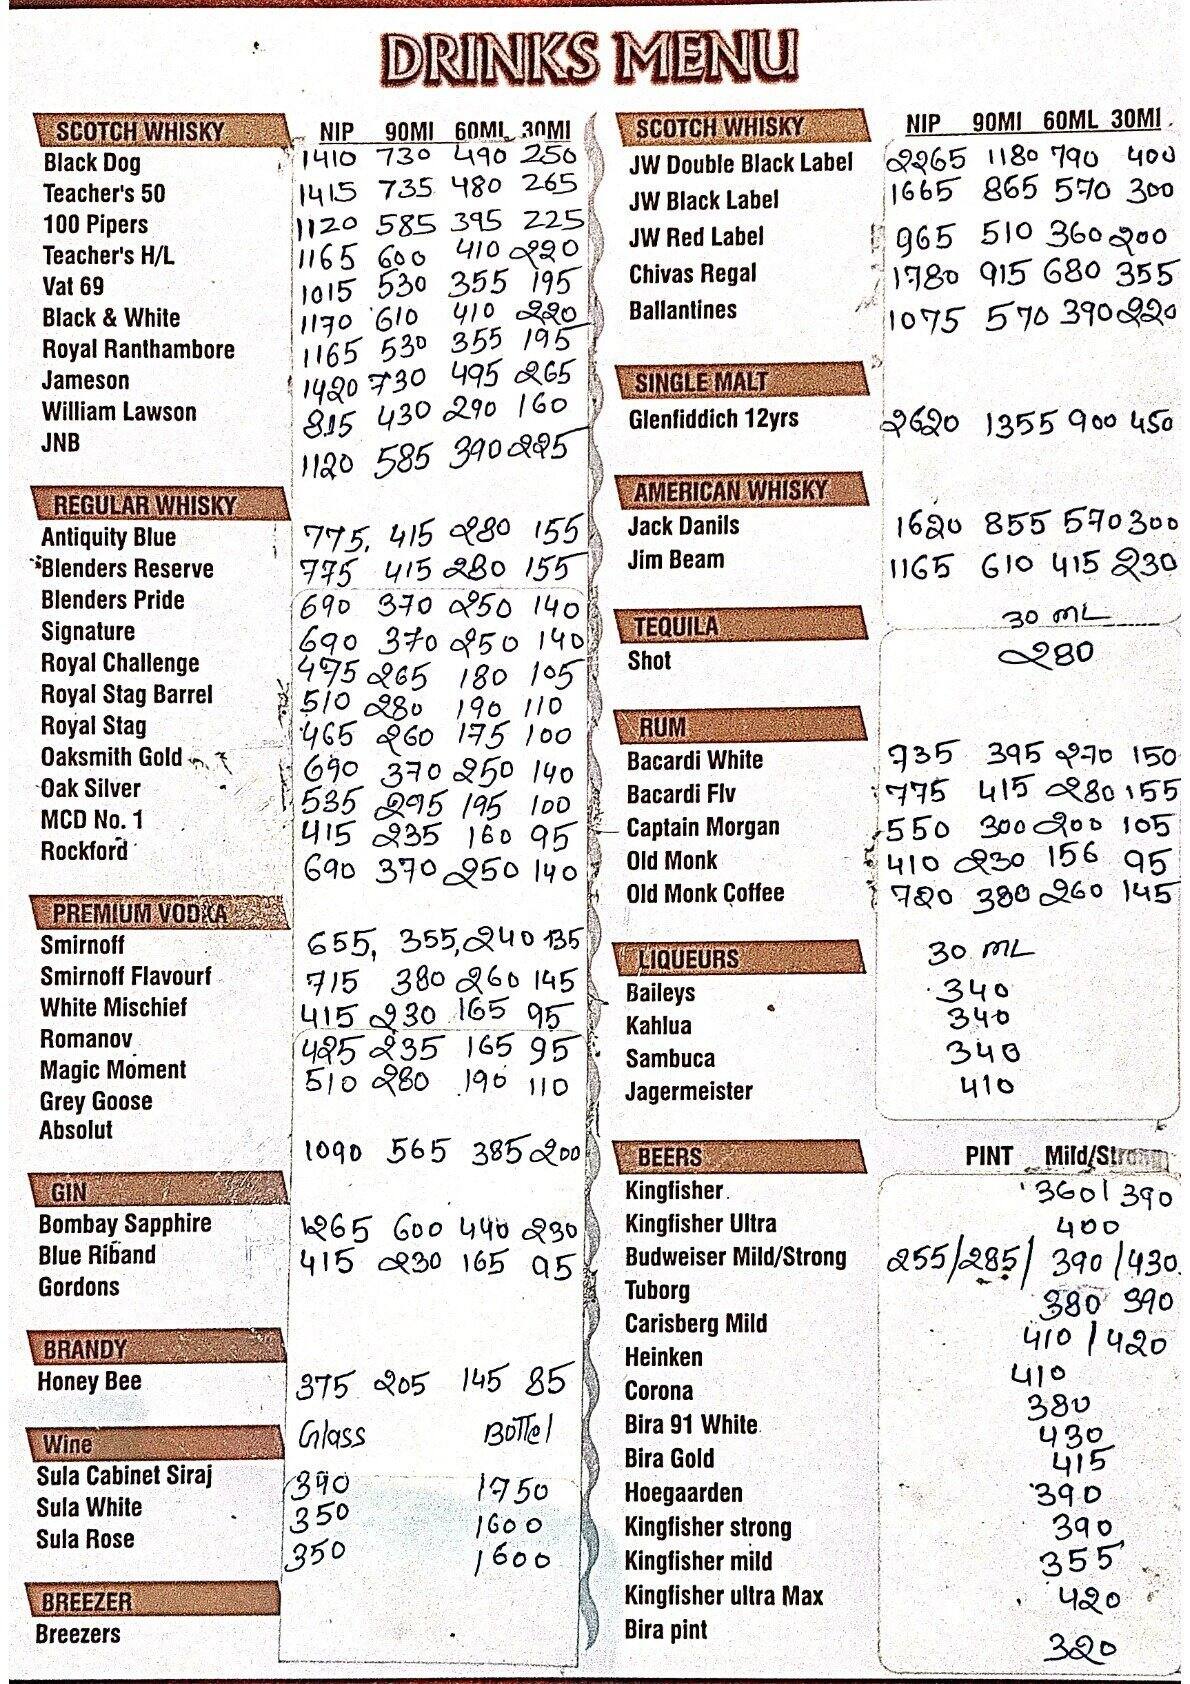 DRINKS MENU
SCOTCH WHISKY NIP 90MI 60ML 30MI
Black Dog 1410 730 490 250
Teacher's 50 1415 735 480 265
100 Pipers 1120 585 395 225
Teacher's H/L 1165 600 410 220
Vat 69 1015 530 355 195
Black & White 1170 610 410 220
Royal Ranthambore 1165 530 355 195
Jameson 1420 730 495 265
William Lawson 815 430 290 160
JNB 1120 585 390 225
REGULAR WHISKY
Antiquity Blue 775, 415 280 155
Blenders Reserve 775 415 280 155
Blenders Pride 690 370 250 140
Signature 690 370 250 140
Royal Challenge 475 265 180 105
Royal Stag Barrel 510 280 190 110
Royal Stag 465 260 175 100
Oaksmith Gold 690 370 250 140
Oak Silver 535 295 195 100
MCD No. 1 415 235 160 95
Rockford 690 370 250 140
PREMIUM VODKA
Smirnoff 655, 355, 240 135
Smirnoff Flavourf 715 380 260 145
White Mischief 415 230 165 95
Romanov 425 235 165 95
Magic Moment 510 280 190 110
Grey Goose
Absolut 1090 565 385 200
GIN
Bombay Sapphire 1265 600 440 230
Blue Riband 415 230 165 95
Gordons
BRANDY
Honey Bee 375 205 145 85
Wine Glass Bottel
Sula Cabinet Siraj 390 1750
Sula White 350 1600
Sula Rose 350 1600
BREEZER
Breezers
SCOTCH WHISKY NIP 90MI 60ML 30MI
JW Double Black Label 2265 1180 790 400
JW Black Label 1665 865 570 300
JW Red Label 965 510 360 200
Chivas Regal 1780 915 680 355
Ballantines 1075 570 390 220
SINGLE MALT
Glenfiddich 12yrs 2620 1355 900 450
AMERICAN WHISKY
Jack Danils 1620 855 570 300
Jim Beam 1165 610 415 230
TEQUILA 30 ML
Shot 280
RUM
Bacardi White 735 395 270 150
Bacardi Flv 775 415 280 155
Captain Morgan 550 300 200 105
Old Monk 410 230 156 95
Old Monk Coffee 720 380 260 145
LIQUEURS 30 ML
Baileys 340
Kahlua 340
Sambuca 340
Jagermeister 410
BEERS PINT Mild/Strong
Kingfisher 360/390
Kingfisher Ultra 400
Budweiser Mild/Strong 255/285/ 390/430
Tuborg 380 390
Carisberg Mild 410/420
Heinken 410
Corona 380
Bira 91 White 430
Bira Gold 415
Hoegaarden 390
Kingfisher strong 390
Kingfisher mild 355
Kingfisher ultra Max 420
Bira pint 320